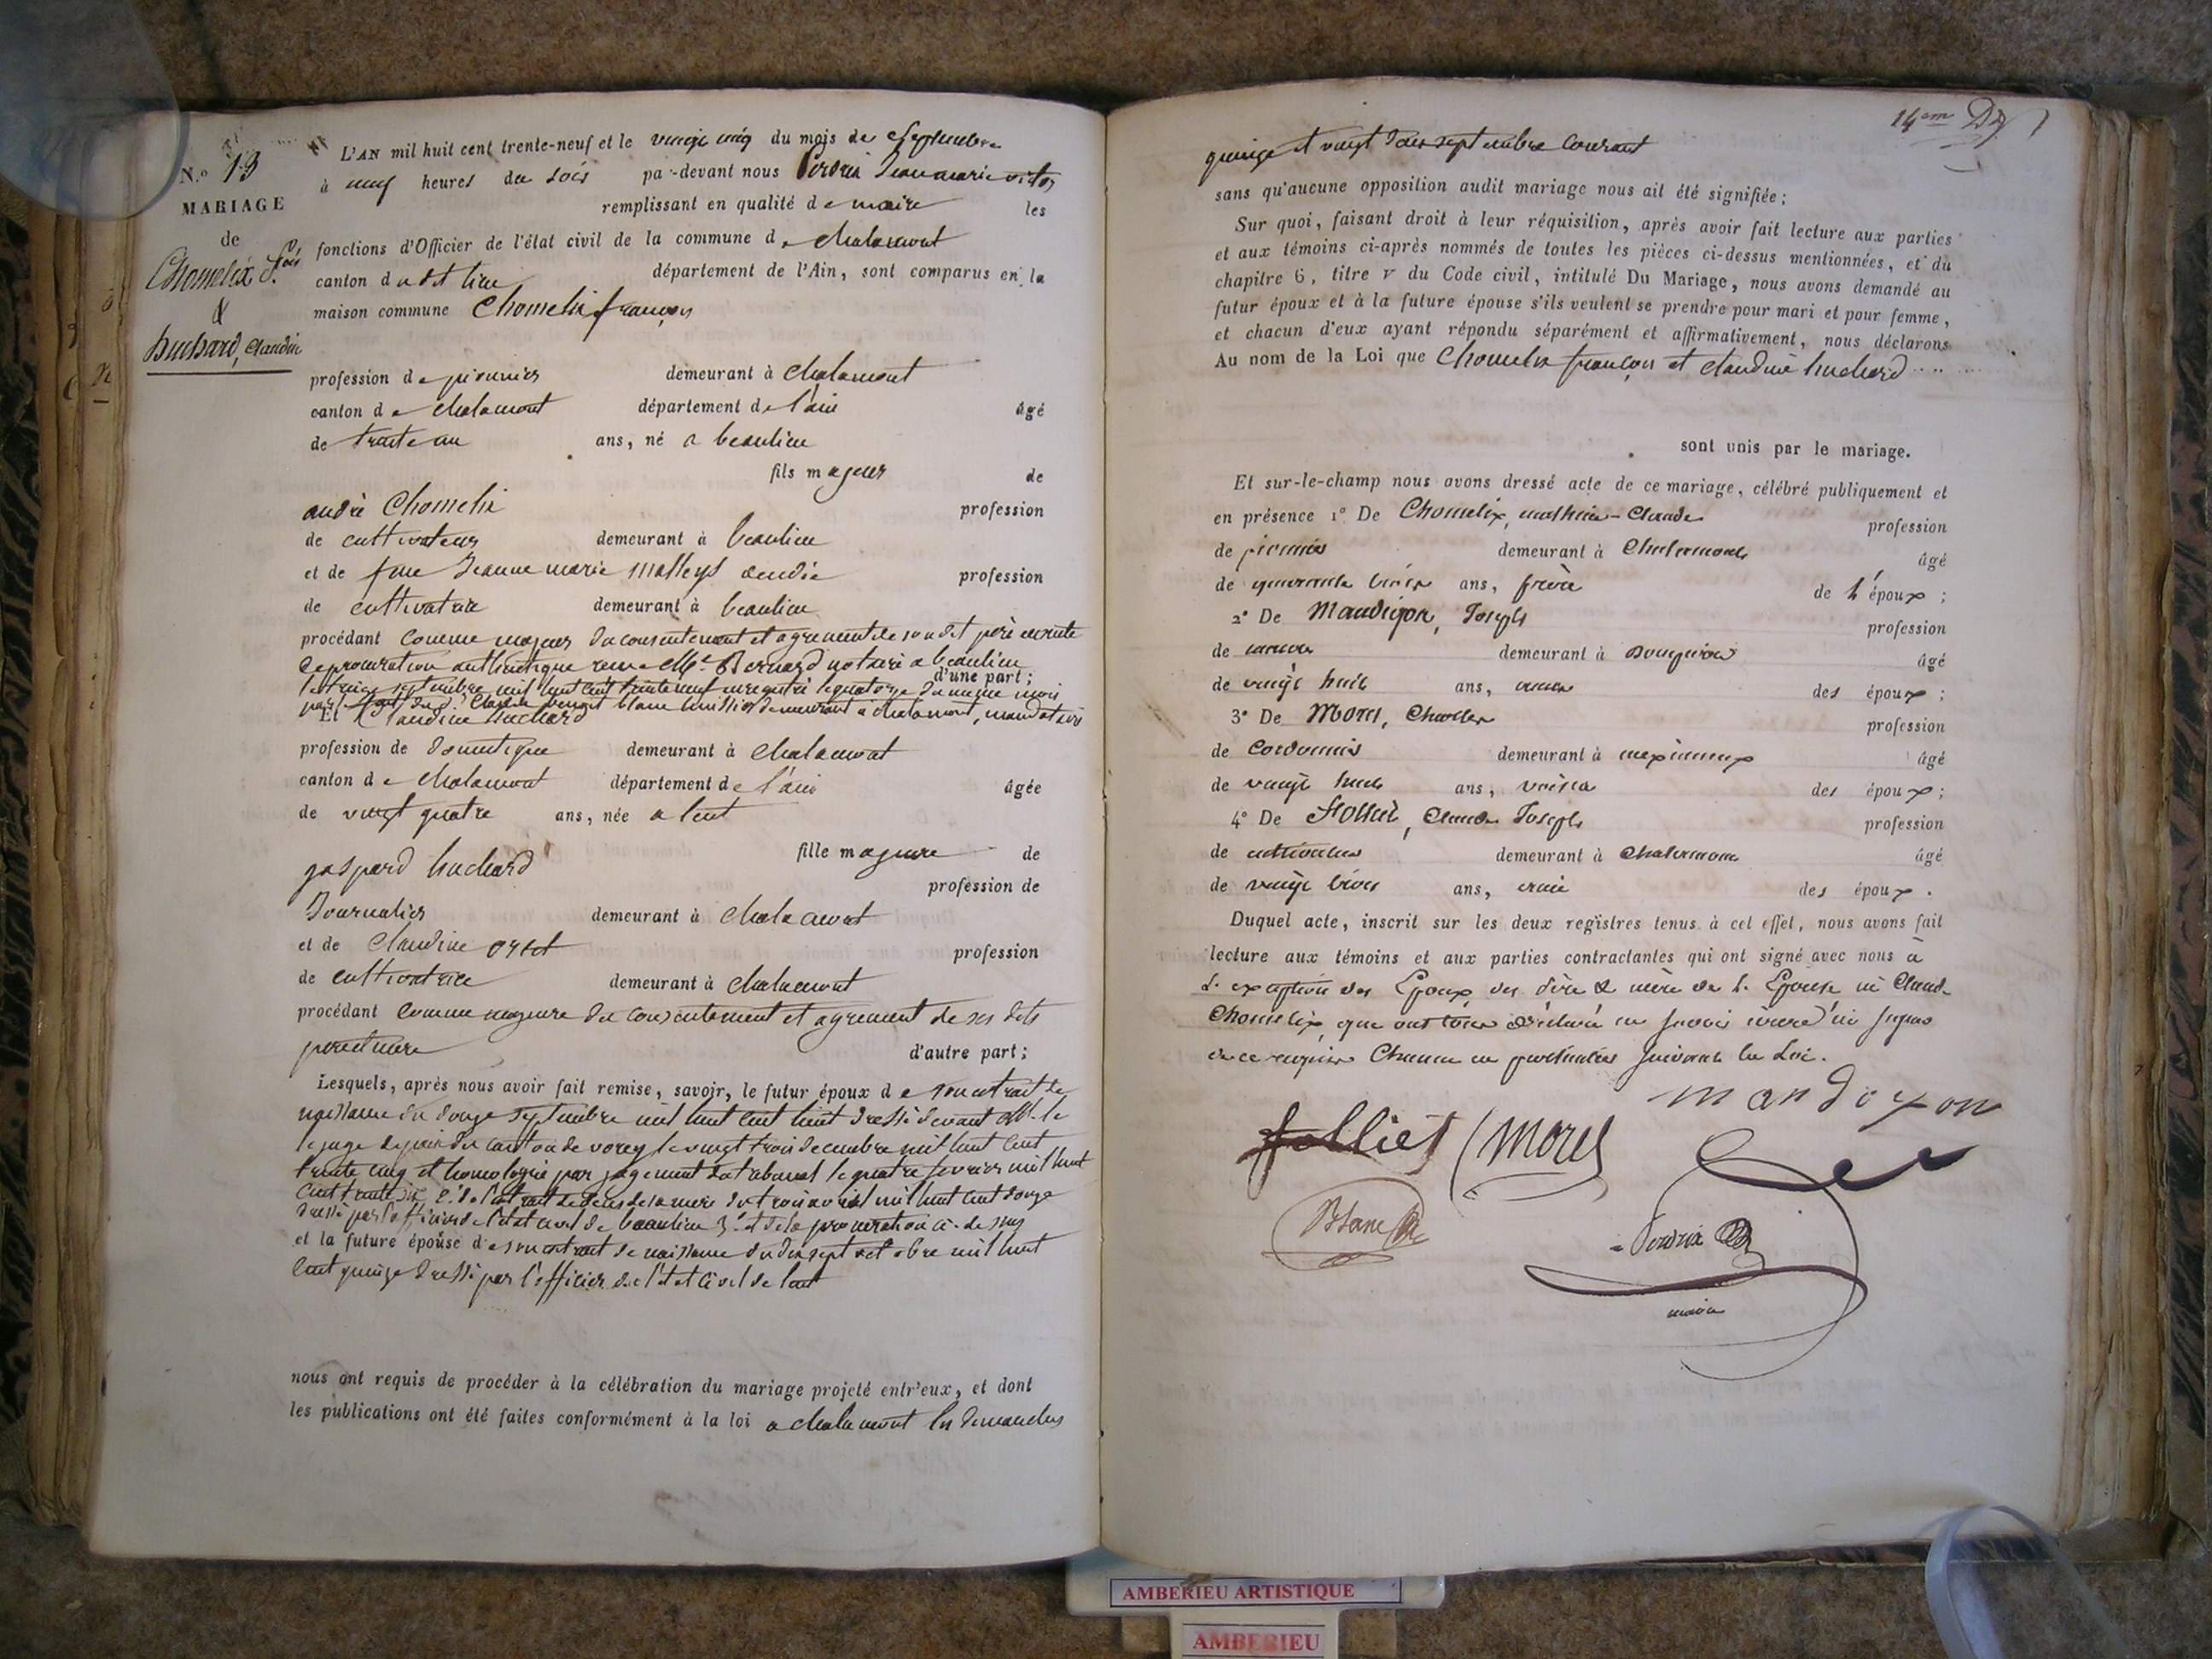 N.º 13
MARIAGE
de
Chomelix f.çois
&
huchard, Claudine
L'AN mil huit cent trente-neuf et le vingt cinq du mois de Septembre
à neuf heures du soir par-devant nous Perdrix Jean marie victor
remplissant en qualité de maire les
fonctions d'Officier de l'état civil de la commune de chalamont
canton dudit lieu département de l'Ain, sont comparus en la
maison commune Chomelix françois
profession de pionnier demeurant à chalamont
canton de chalamont département de l'ain âgé
de trente un ans, né a beaulieu
fils majeur de
andré Chomelix profession
de cultivateur demeurant à beaulieu
et de feue Jeanne marie profession
de cultivatrice demeurant à beaulieu
procédant Comme majeur du consentement et agrement de son dit père
procuration authentique Me Bernard notaire a beaulieu
d'une part;
le treize septembre mil huit cent trente neuf enregistré le quatorze du meme mois
par huissier demeurant a chalamont, mandataire
Et Claudine huchard
profession de domestique demeurant à chalamont
canton de chalamont département de l'ain âgée
de vingt quatre ans, née a lent
fille majeure de
gaspard huchard profession de
Journalier demeurant à chalamont
et de Claudine orset profession
de cultivatrice demeurant à chalamont
procédant Comme majeure du consentement et agrement de ses dits
père et mere d'autre part;
Lesquels, après nous avoir fait remise, savoir, le futur époux de son extrait de
naissance du douze septembre mil huit cent huit dressé devant M. le
juge de paix du canton de vorey le vingt trois decembre mil huit cent
trente cinq et homologué par jugement du tribunal le quatre fevrier mil huit
cent trente six 2.º de l'extrait de deces de sa mere du trois avril mil huit cent douze
dressé par l'officier de l'etat civil de beaulieu 3.º et de la procuration ci-dessus
et la future épouse de son extrait de naissance du dix sept octobre mil huit
cent quinze dressé par l'officier de l'etat civil de lent
nous ont requis de procéder à la célébration du mariage projeté entr'eux, et dont
les publications ont été faites conformément à la loi a chalamont les dimanches
14em
quinze et vingt deux septembre courant
sans qu'aucune opposition audit mariage nous ait été signifiée;
Sur quoi, faisant droit à leur réquisition, après avoir fait lecture aux parties
et aux témoins ci-après nommés de toutes les pièces ci-dessus mentionnées, et du
chapitre 6, titre V du Code civil, intitulé Du Mariage, nous avons demandé au
futur époux et à la future épouse s'ils veulent se prendre pour mari et pour femme,
et chacun d'eux ayant répondu séparément et affirmativement, nous déclarons
Au nom de la Loi que Chomelix françois et claudine huchard
sont unis par le mariage.
Et sur-le-champ nous avons dressé acte de ce mariage, célébré publiquement et
en présence 1º De Chomelix, mathieu-Claude profession
de pionnier demeurant à Chalamont âgé
de quarante trois ans, frère de l'époux;
2º De Mandigon, Joseph profession
de demeurant à âgé
de vingt huit ans, des époux;
3º De Morel, Charles profession
de Cordonnier demeurant à meximieux âgé
de vingt huit ans, voisin des époux;
4º De Jolliet, Claude Joseph profession
de cultivateur demeurant à Chalamont âgé
de vingt trois ans, ami des époux.
Duquel acte, inscrit sur les deux registres tenus à cet effet, nous avons fait
lecture aux témoins et aux parties contractantes qui ont signé avec nous à
L'exception des Epoux, des père & mère de l'Epouse et Claude
Chomelix, que ont tous déclaré ne savoir écrire ni signer
de ce requis Chacun en particulier suivant la Loi.
mandigon
Jolliet Morel
Blanc
Perdrix
maire
AMBERIEU ARTISTIQUE
AMBERIEU